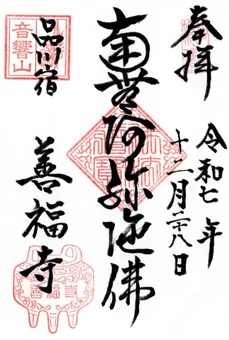 奉拝
令和七年
十二月二十八日
南無阿弥陀佛
音響山
品川宿
善福寺